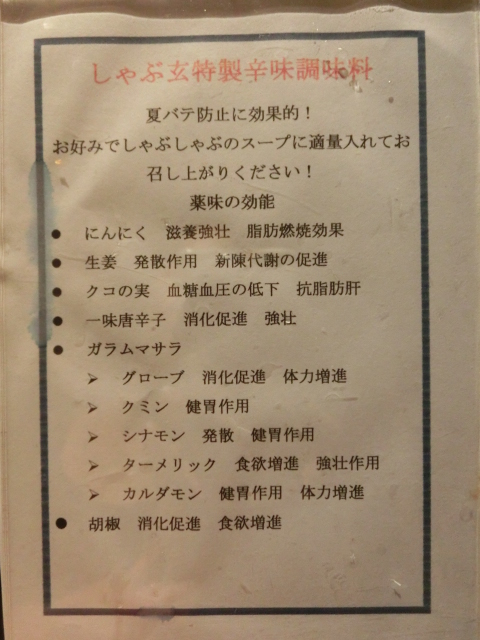 しゃぶ玄特製辛味調味料
夏バテ防止に効果的！
お好みでしゃぶしゃぶのスープに適量入れてお
召し上がりください！
薬味の効能
● にんにく 滋養強壮 脂肪燃焼効果
● 生姜 発散作用 新陳代謝の促進
● クコの実 血糖血圧の低下 抗脂肪肝
● 一味唐辛子 消化促進 強壮
● ガラムマサラ
➢ グローブ 消化促進 体力増進
➢ クミン 健胃作用
➢ シナモン 発散 健胃作用
➢ ターメリック 食欲増進 強壮作用
➢ カルダモン 健胃作用 体力増進
● 胡椒 消化促進 食欲増進